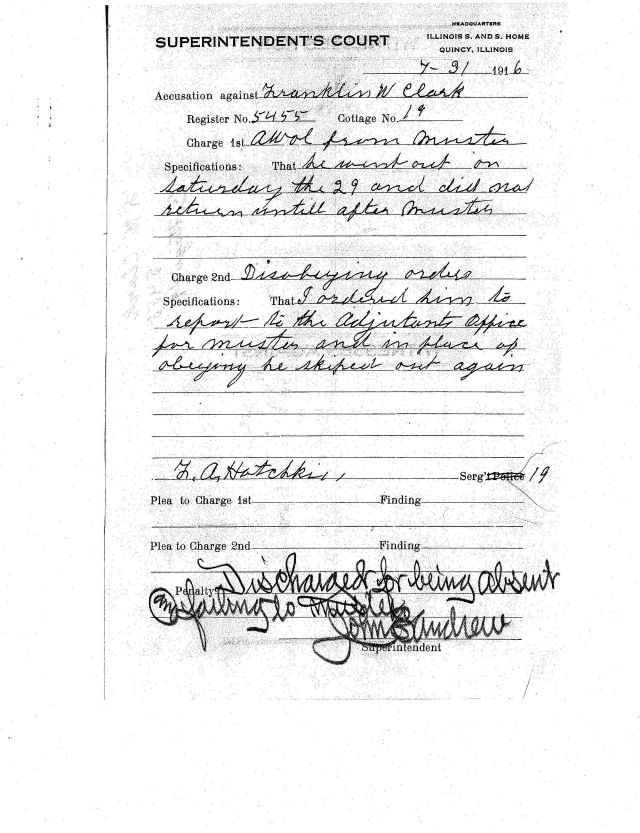 HEADQUARTERS
SUPERINTENDENT'S COURT
ILLINOIS S. AND S. HOME
QUINCY, ILLINOIS
7-31 1916
Accusation against Franklin W Clark
Register No. 5455 Cottage No. 19
Charge 1st AWOL from Muster
Specifications: That he went out on
Saturday the 29 and did not
return untill after Muster
Charge 2nd Disobeying orders
Specifications: That I ordered him to
report to the Adjutants Office
for muster and in place of
obeying he skiped out again
F. A. Hotchkiss Serg't Police 19
Plea to Charge 1st Finding
Plea to Charge 2nd Finding
Penalty Discharged for being absent
failing to Muster
John E Andrew
Superintendent